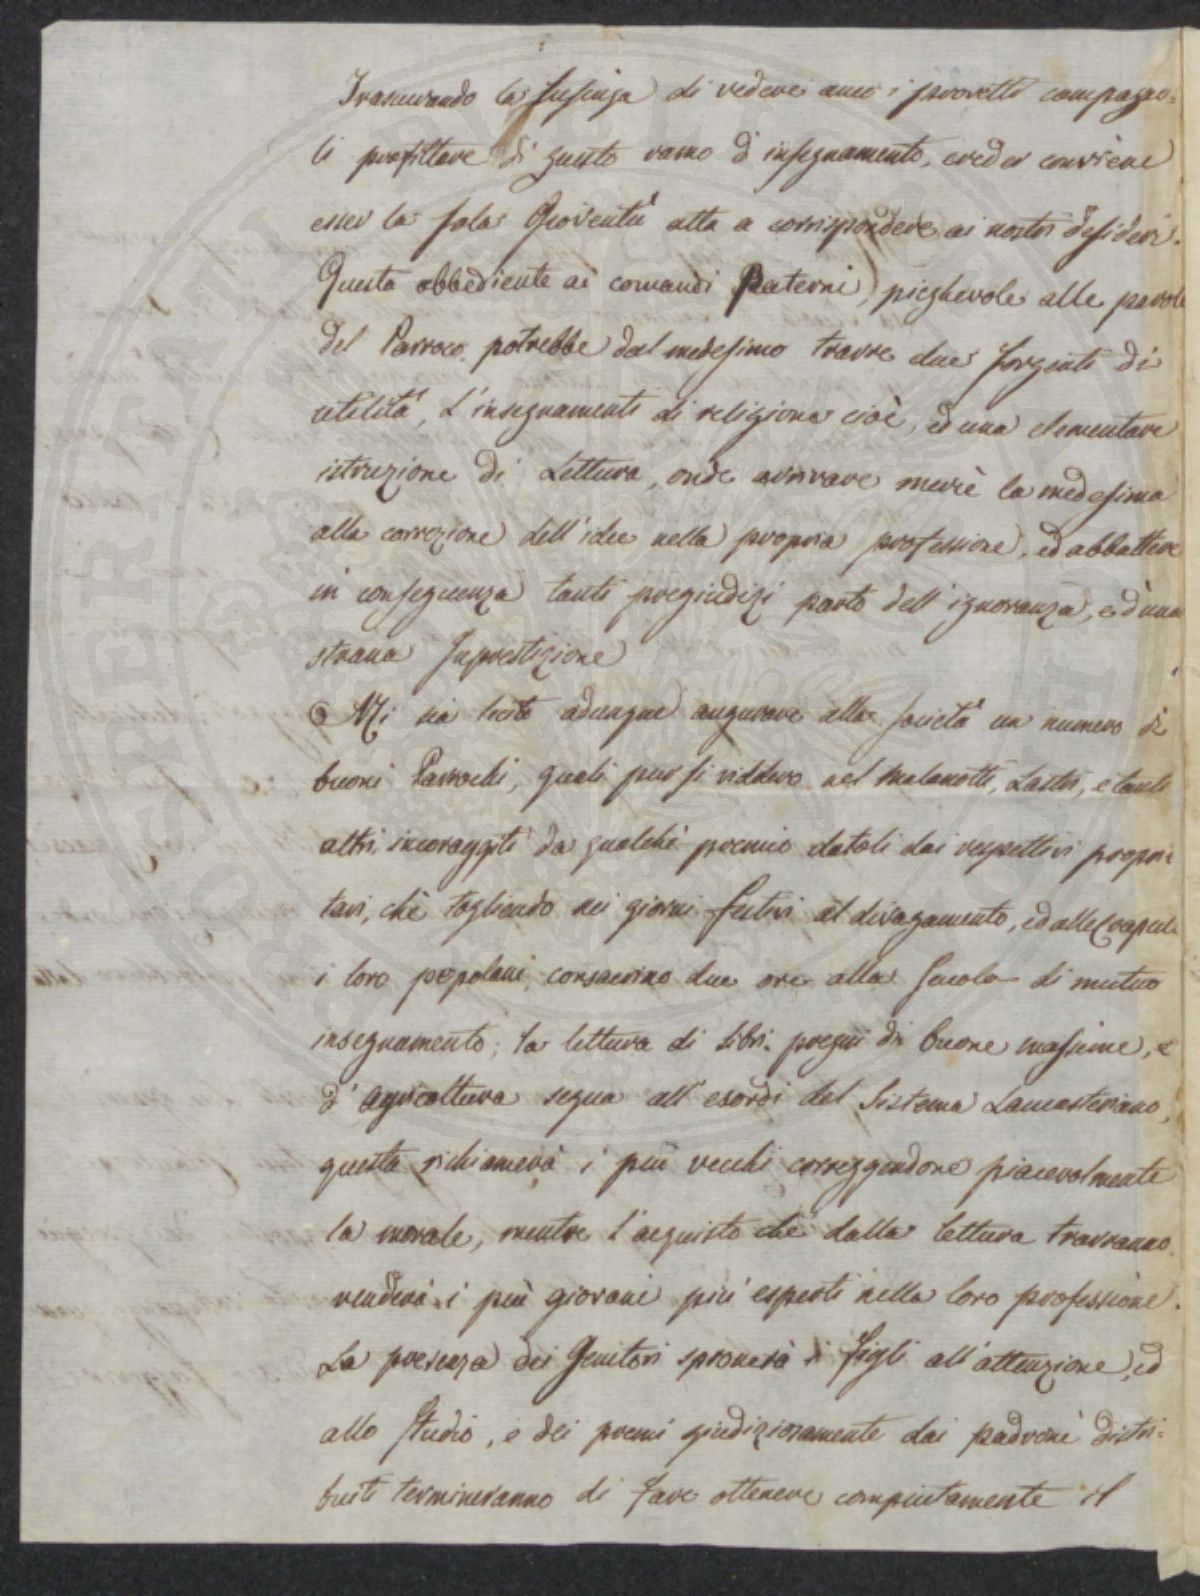 Trascurando la lusinga di vedere anco i provetti compagno=
li profittare di questo ramo d'insegnamento, creder conviene
esser la sola Gioventù atta a corrispondere ai nostri desideri.
Questa obbediente ai comandi Paterni, pieghevole alle parole
del Parroco potrebbe dal medesimo trarre due sorgenti di
utilità, l'insegnamenti di religione cioè, ed una elementare
istruzione di Lettura, onde arrivare mercè la medesima
alla correzione dell'idee nella propria professione, ed abbattere
in conseguenza tanti pregiudizi parto dell'ignoranza, e d'una
strana superstizione
Mi sia lecito adunque augurare alla società un numero di
buoni Parrochi, quali pur si viddero nel Malanotti, Lastri, e tanti
altri, incoraggiti da qualche premio datoli dai respettivi proprie=
tari, chè togliendo nei giorni festivi al divagamento, ed alle Crapule
i loro popolani, consacrino due ore alla Scuola di mutuo
insegnamento; la lettura di libri pregni di buone massime, e
d'agricoltura segua all'esordi del Sistema Lancasteriano,
questa richiamerà i più vecchi correggendone piacevolmente
la morale, mentre l'acquisto che dalla lettura trarranno
renderà i più giovani più esperti nella loro professione.
La presenza dei Genitori spronerà i figli all'attenzione, ed
allo studio, e dei premi giudiziosamente dai padroni distri=
buiti termineranno di fare ottenere compiutamente il